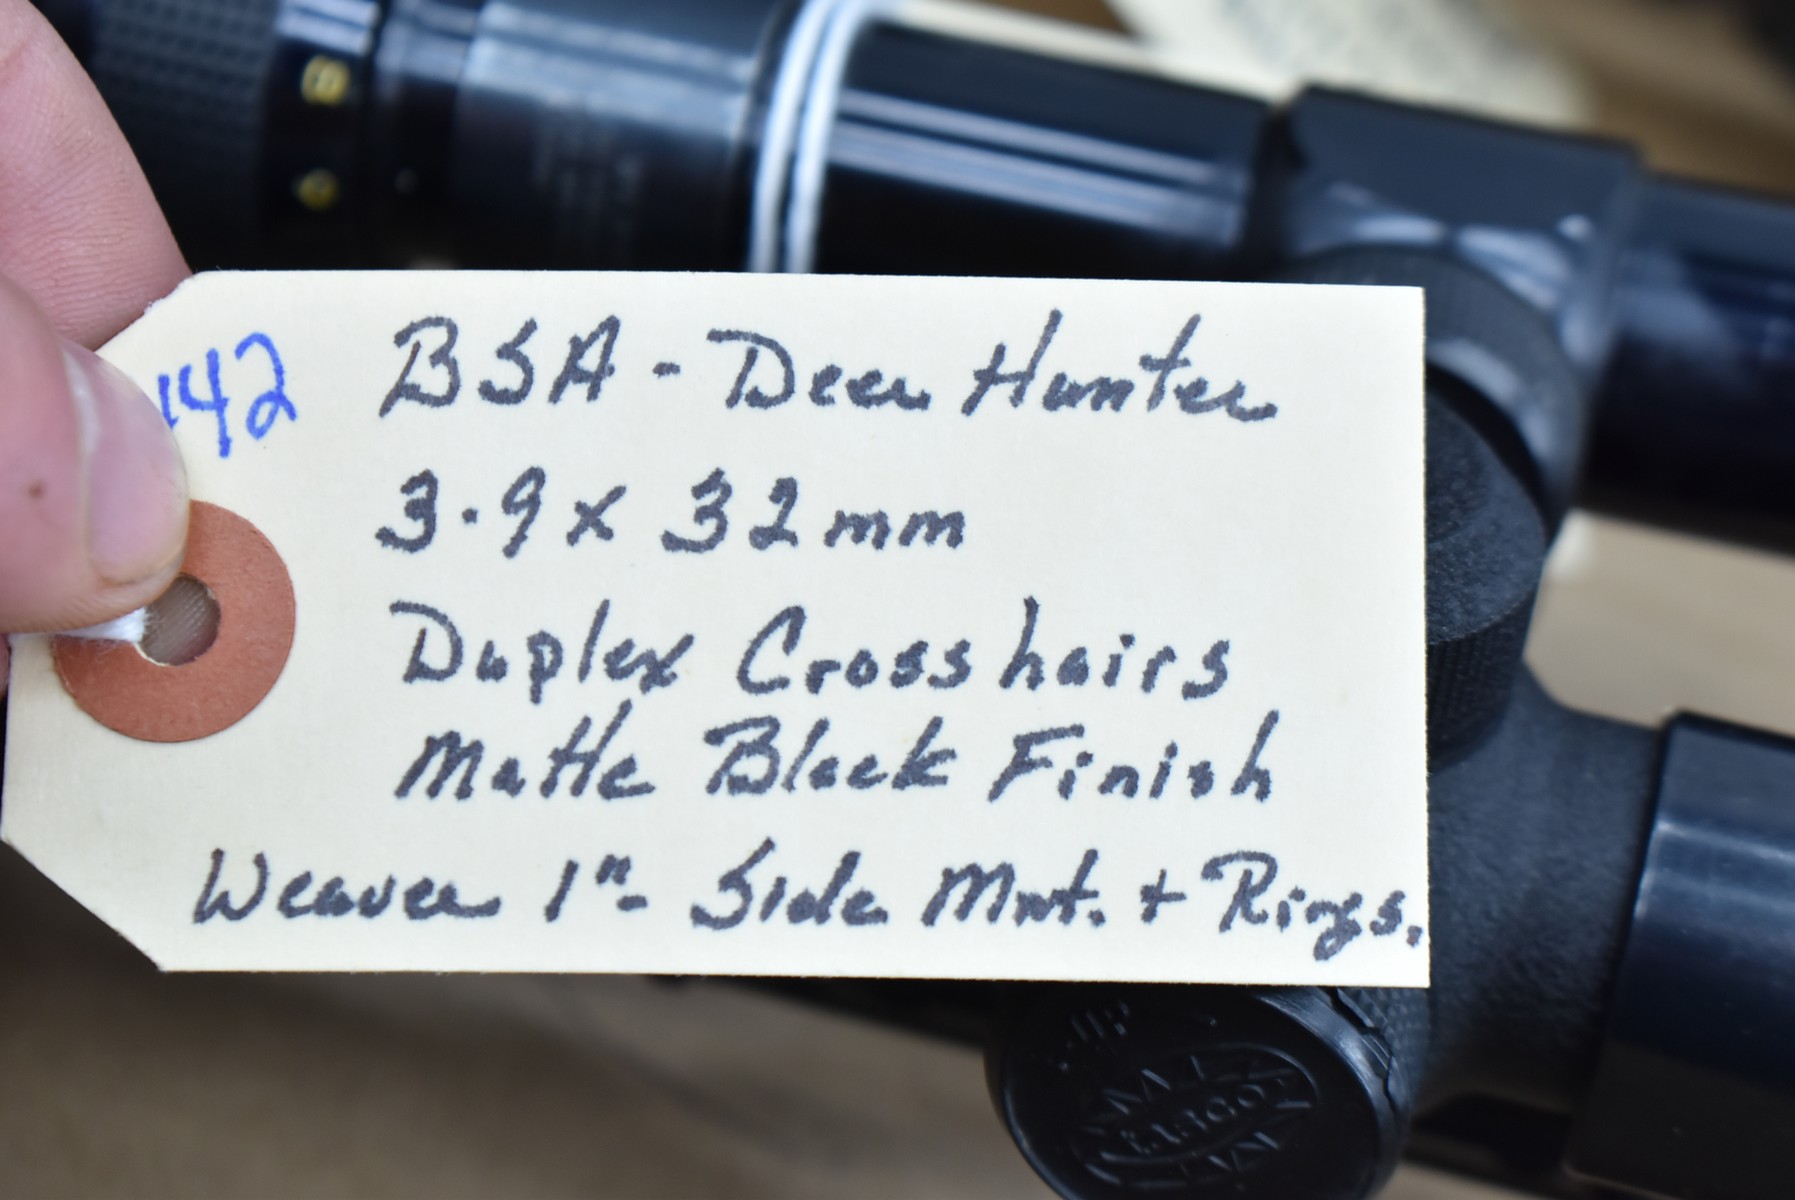 142
BSA - Deer Hunter
3·9 x 32mm
Duplex Crosshairs
Matte Black Finish
Weaver 1"- Side Mnt. + Rings.
8
TASCO